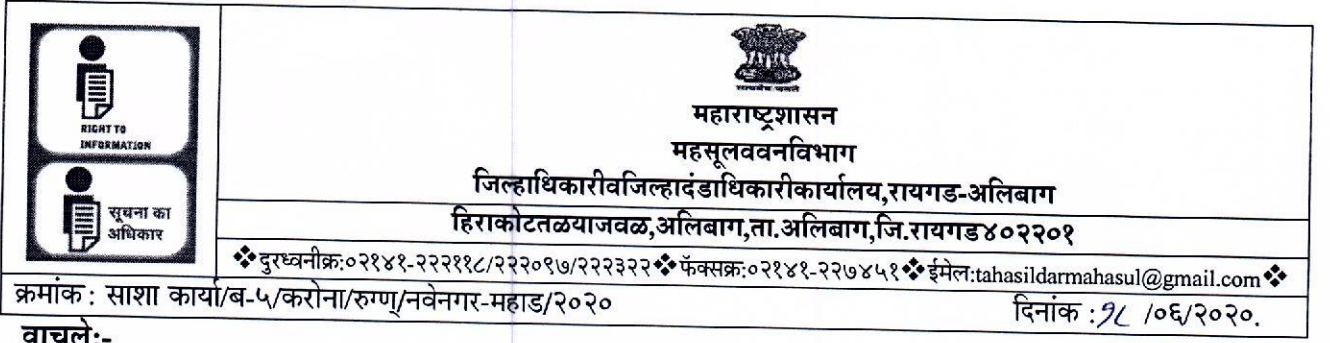 RIGHT TO
INFORMATION
सूचना का
अधिकार
सत्यमेव जयते
महाराष्ट्रशासन
महसूलववनविभाग
जिल्हाधिकारीवजिल्हादंडाधिकारीकार्यालय,रायगड-अलिबाग
हिराकोटतळयाजवळ,अलिबाग,ता.अलिबाग,जि.रायगड४०२२०१
❖दुरध्वनीक्र:०२१४१-२२२११८/२२२०९७/२२२३२२❖फॅक्सक्र:०२१४१-२२७४५१❖ईमेल:tahasildarmahasul@gmail.com❖
क्रमांक : साशा कार्या/ब-५/करोना/रुग्ण/नवेनगर-महाड/२०२० दिनांक :१८ /०६/२०२०.
वाचले:-